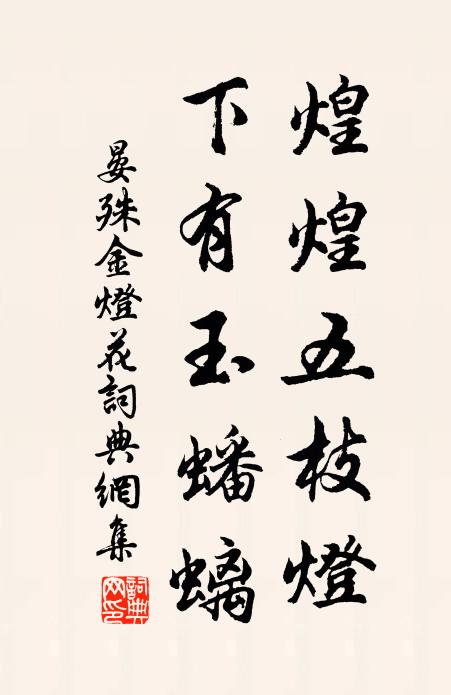 煌煌五枝燈
下有玉蟠螭
晏殊金燈花詞典網集
詞典
网印